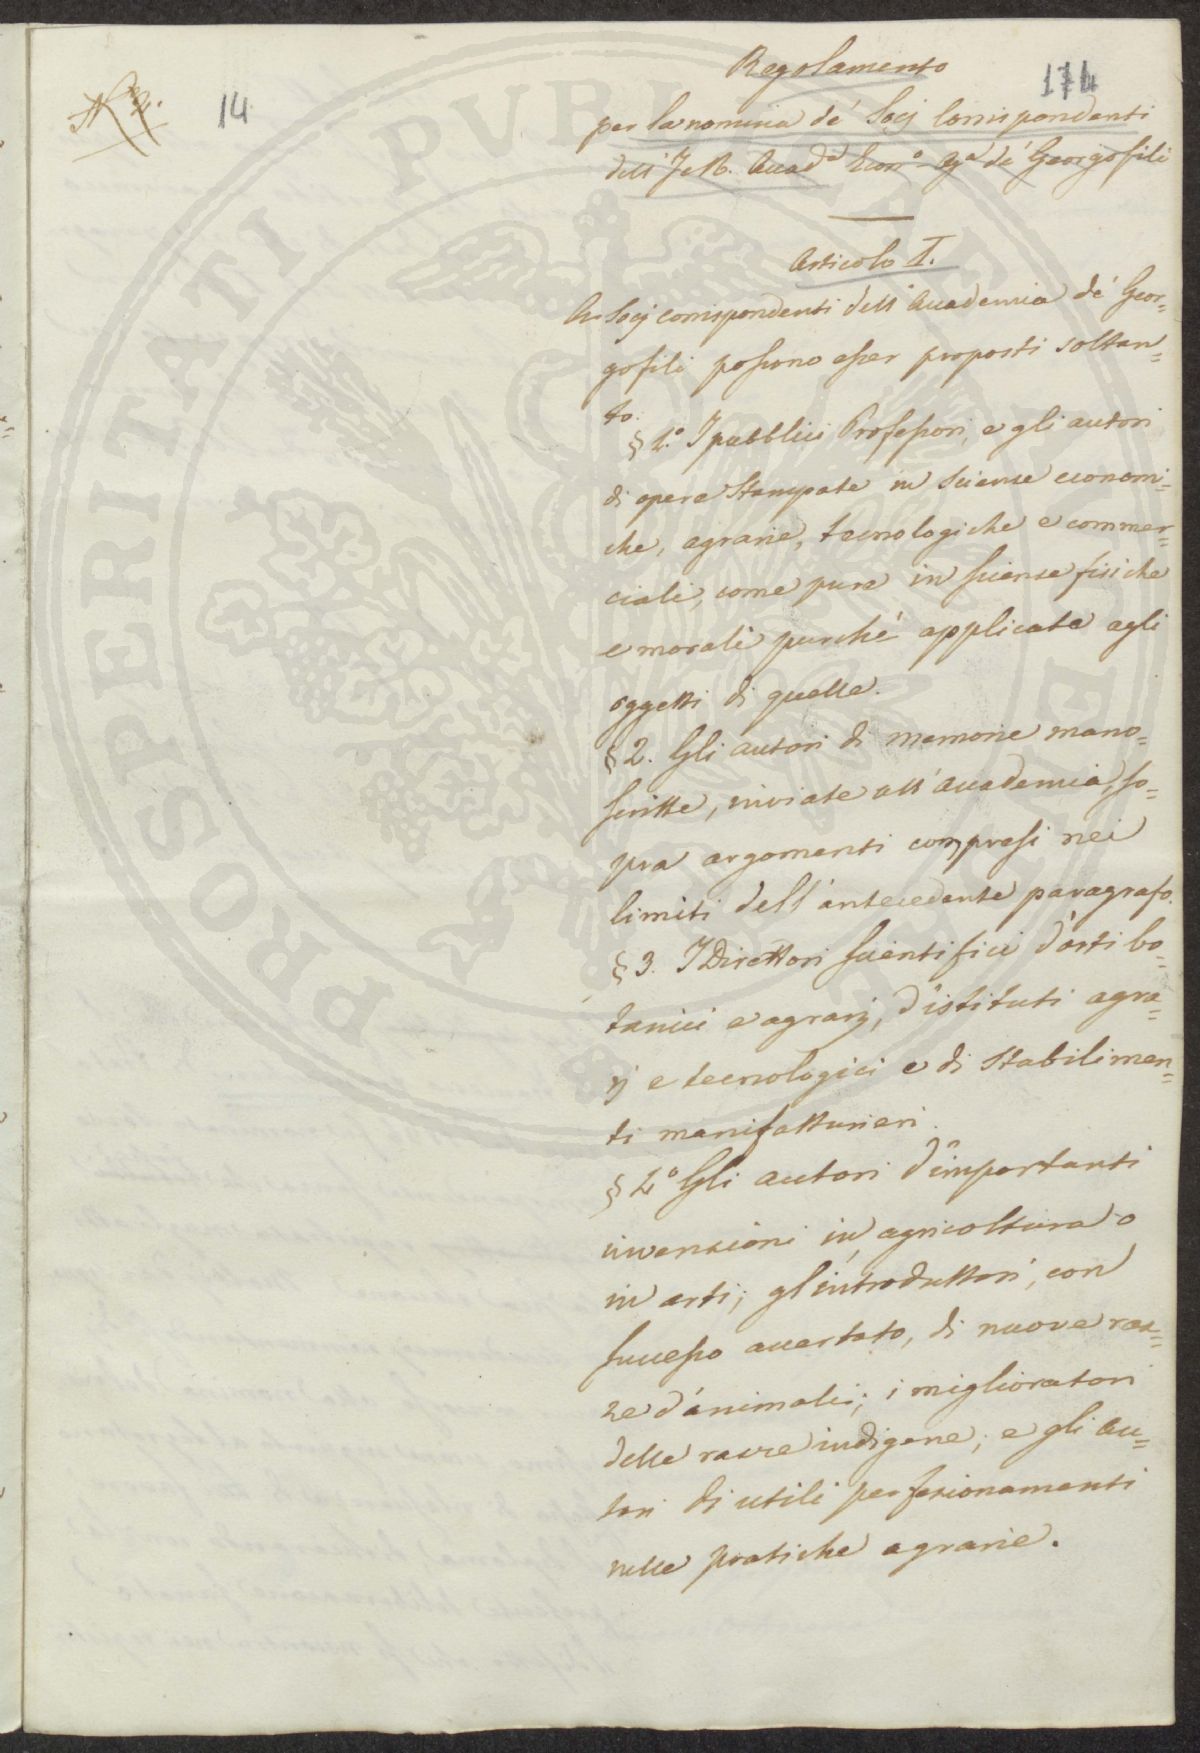 N.º 2.
14
174
Regolamento
per la nomina de' Socj Corrispondenti
dell' I. e R. Accad.ª Econ.º Ag.ª de' Georgofili
Articolo I.
A Socj corrispondenti dell' Accademia de' Geor=
gofili possono esser proposti soltan=
to:
§ 1.º I pubblici Professori, e gli autori
di opere stampate in scienze economi=
che, agrarie, tecnologiche e commer=
ciali, come pure in scienze fisiche
e morali purchè applicate agli
oggetti di quelle.
§ 2. Gli autori di memorie mano=
scritte, inviate all' Accademia, so=
pra argomenti compresi nei
limiti dell' antecedente paragrafo.
§ 3. I Direttori scientifici d'orti bo=
tanici e agrarj, d'istituti agra=
rj e tecnologici e di stabilimen=
ti manifatturieri.
§ 4º Gli autori d'importanti
invenzioni in agricoltura o
in arti; gl'introduttori, con
successo accertato, di nuove raz=
ze d'animali; i miglioratori
delle razze indigene; e gli au=
tori di utili perfezionamenti
nelle pratiche agrarie.
PROSPERITATI PUBLICAE AUGENDAE